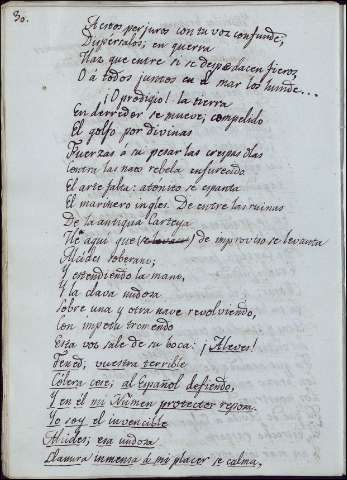 30.
A estos perjuros con tu voz confunde;
Dispersalos; en guerra
Haz que entre si se despedacen fieros,
O á todos juntos en el mar los hunde...
¡O prodigio! la tierra
En derredor se mueve; compelido
El golfo por divinas
Fuerzas á su pesar las crespas olas
Contra las naos rebela enfurecido
El arte falta: atonito se espanta
El marinero ingles. De entre las ruinas
De la antigua Carteya
He aqui que (se levan) de improviso se levanta
Alcides soberano;
Y estendiendo la mano,
Y la clava nudosa
Sobre una y otra nave revolviendo,
Con impetu tremendo
Esta voz sale de su boca: ¡Aleves!
Tened, vuestra terrible
Cólera cese; al Español defiendo,
Y en él mi Númen protector reposa.
Yo soy el invencible
Alcides; esa undosa
Llanura inmensa á mi placer se calma,